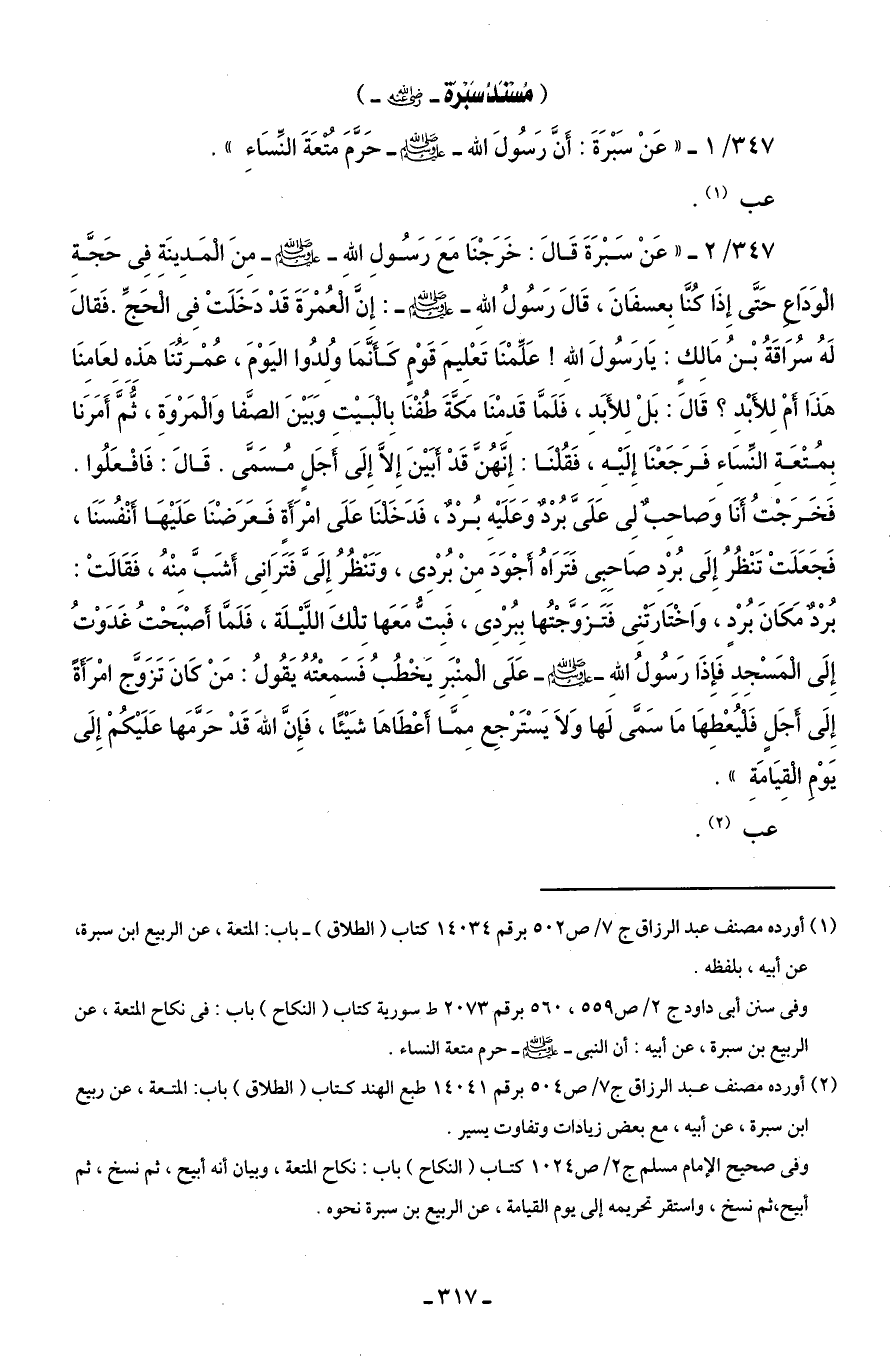 ( مُسْنَدُ سَبْرَةَ ـ رضي الله عنه ـ )
٣٤٧/ ١ ـ « عَنْ سَبْرَةَ : أَنَّ رَسُولَ الله ـ ﷺ ـ حَرَّمَ مُتْعَةَ النِّسَاءِ » .
عب (١) .
٣٤٧/ ٢ ـ « عَنْ سَبْرَةَ قَالَ : خَرَجْنَا مَعَ رَسُولِ الله ـ ﷺ ـ مِنَ الْمَدِينَةِ فِى حَجَّةِ
الْوَدَاعِ حَتَّى إِذَا كُنَّا بِعسفَانَ ، قَالَ رَسُولُ الله ـ ﷺ ـ : إِنَّ الْعُمْرَةَ قَدْ دَخَلَتْ فِى الْحَجِّ .فَقالَ
لَهُ سُرَاقَةُ بْنُ مَالِكٍ : يَارَسُولَ الله ! عَلِّمْنَا تَعْلِيمَ قَوْمٍ كَأَنَّمَا وُلِدُوا الْيَوْمَ ، عُمْرَتُنَا هَذِهِ لِعَامِنَا
هَذَا أَمْ لِلأَبْدِ ؟ قَالَ : بَلْ لِلأَبَدِ ، فَلَمَّا قَدِمْنَا مَكَّةَ طُفْنَا بِالْبَيْتِ وَبَيْنَ الصَّفَا وَالْمَرْوَةِ ، ثُمَّ أَمَرَنَا
بِمُتْعَةِ النِّسَاءِ فَرَجَعْنَا إِلَيْهِ ، فَقُلْنَا : إِنَّهُنَّ قَدْ أَبَيْنَ إِلاَّ إِلَى أَجَلٍ مُسَمَّى . قَالَ : فَافْعَلُوا .
فَخَرَجْتُ أَنَا وَصَاحِبٌ لِى عَلَىَّ بُرْدٌ وَعَلَيْهِ بُرْدٌ، فَدَخَلْنَا عَلَى امْرَأَةٍ فَعَرَضْنَا عَلَيْهَا أَنْفُسَنَا ،
فَجَعَلَتْ تَنْظُرُ إِلَى بُرْدِ صَاحِبِى فَتَرَاهُ أَجْوَدَ مِنْ بُرْدِى ، وَتَنْظُرُ إِلَىَّ فَتَرَانِى أَشَبَّ مِنْهُ ، فَقَالَتْ :
بُرْدٌ مَكَانَ بُرْدٍ ، وَاخْتَارَتْنِى فَتَزَوَّجْتُها بِبُرْدِى ، فَبِتُّ مَعَها تِلْكَ اللَّيْلَةَ ، فَلَمَّا أَصْبَحْتُ غَدَوْتُ
إِلَى الْمَسْجِدِ فَإِذَا رَسُولُ الله ـ ﷺ ـ عَلَى الْمِنْبَرِ يَخْطُبُ فَسَمِعْتُهُ يَقُولُ : مَنْ كَانَ تَزَوَّج امْرَأَةً
إِلَى أَجَلٍ فَلْيُعْطِهَا مَا سَمَّى لَها وَلاَ يَسْتَرْجِع مِمَّا أَعْطَاهَا شَيْئًا ، فَإِنَّ اللهَ قَدْ حَرَّمَها عَلَيْكُمْ إِلَى
يَوْمِ الْقِيَامَةِ » .
عب (٢) .
(١) أورده مصنف عبد الرزاق ج ٧/ ص٥٠٢ برقم ١٤٠٣٤ كتاب ( الطلاق ) ـ باب: المتعة ، عن الربيع ابن سبرة،
عن أبيه ، بلفظه .
وفى سنن أبى داود ج ٢/ ص٥٥٩ ، ٥٦٠ برقم ٢٠٧٣ ط سورية كتاب ( النكاح ) باب : فى نكاح المتعة ، عن
الربيع بن سبرة ، عن أبيه : أن النبى ـ ﷺ ـ حرم متعة النساء .
(٢) أورده مصنف عبد الرزاق ج٧/ ص٥٠٤ برقم ١٤٠٤١ طبع الهند كتاب ( الطلاق ) باب: المتعة ، عن ربيع
ابن سبرة ، عن أبيه ، مع بعض زيادات وتفاوت يسير .
وفى صحيح الإمام مسلم ج٢/ ص١٠٢٤ كتاب ( النكاح ) باب : نكاح المتعة ، وبيان أنه أبيح ، ثم نسخ ، ثم
أبيح،ثم نسخ ، واستقر تحريمه إلى يوم القيامة ، عن الربيع بن سبرة نحوه .
ـ ٣١٧ ـ